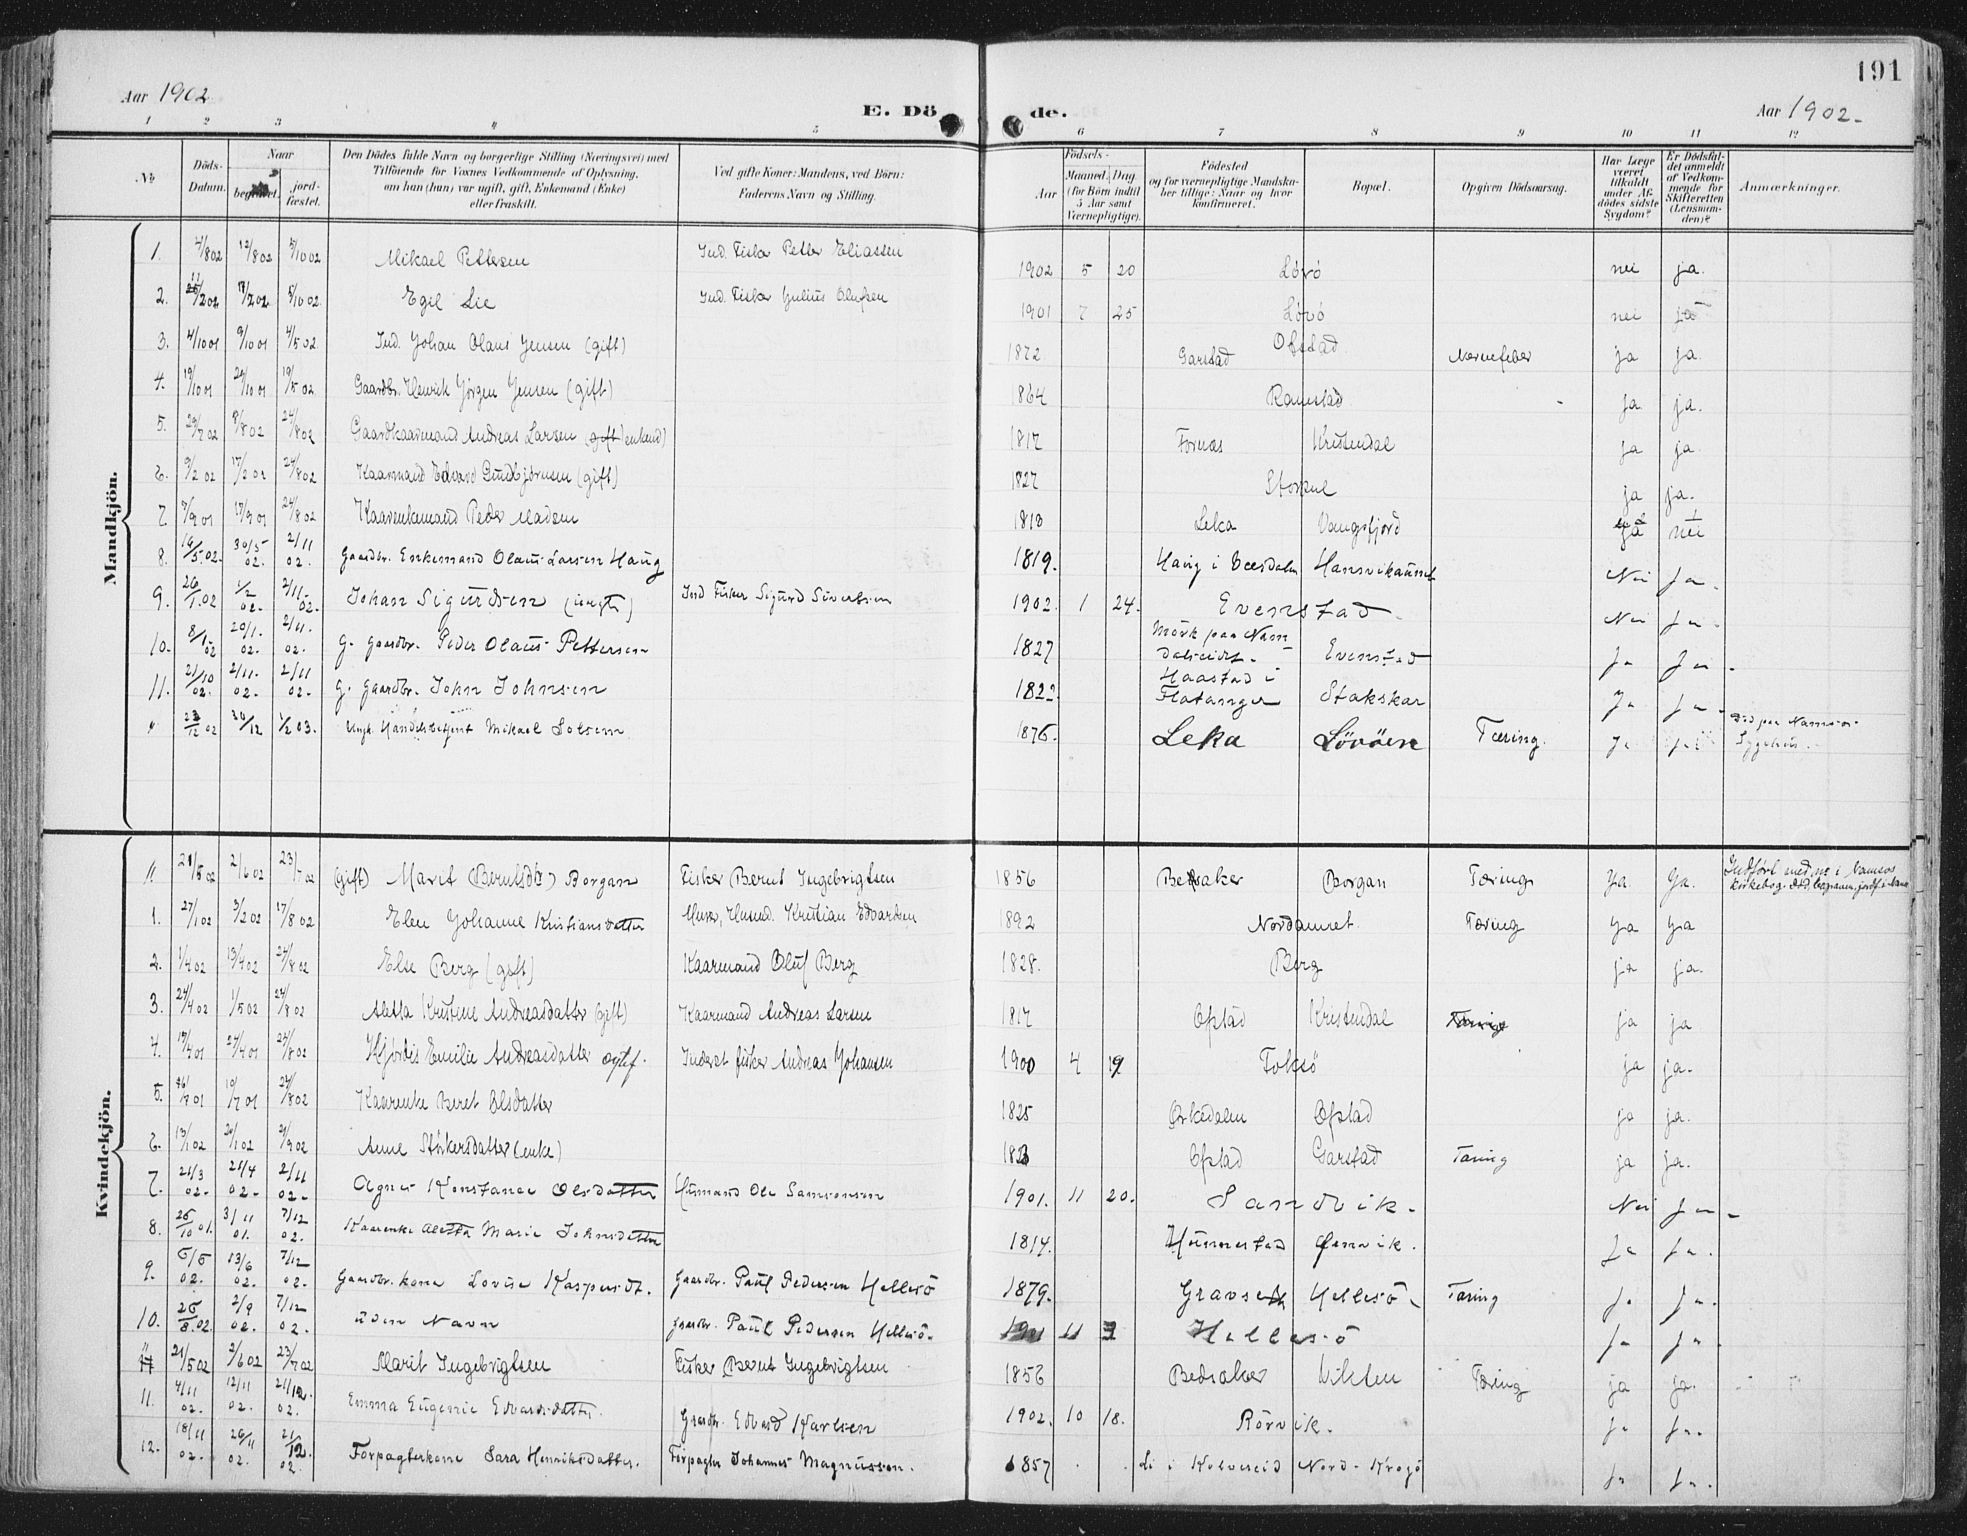 191
Aar 1902
E. Dö de.
Aar 1902.
1 2 3 4 5 6 7 8 9 10 11 12
№
Döds-Datum.
Naar
begravet.
jordfæstet.
Den Dödes fulde Navn og borgerlige Stilling (Næringsvei) med Tilföiende for Voxnes Vedkommende af Oplysning, om han (hun) var ugift, gift, Enkemand (Enke) eller fraskilt.
Ved gifte Koner: Mandens, ved Börn: Faderens Navn og Stilling.
Födsels-
Aar
Maaned. Dag (for Börn indtil 5 Aar samt Værnepligtige).
Födested og for værnepligtige Mandskaber tillige: Naar og hvor konfirmeret.
Bopæl.
Opgiven Dödsaarsag.
Har Læge været tilkaldt under Afdödes sidste Sygdom?
Er Dödsfaldet anmeldt af Vedkommende for Skifteretten (Lensmanden)?
Anmærkninger.
Mandkjön.
1. 4/8 02 12/8 02 5/10 02 Mikael Pettersen Ind. Fisker Petter Eliassen 1902 5 20 Lövö nei ja.
2. 11/2 02 17/2 02 5/10 02 Egil Lie Ind. Fisker Julius Olufsen 1901 7 25 Lövö nei ja
3. 4/10 01 9/10 01 4/5 02 Ind. Johan Olaus Jensen (gift) 1872 Garstad Ofstad Nervefeber ja ja.
4. 19/10 01 29/10 01 19/5 02 Gaardbr. Henrik Jörgen Jensen (gift) 1864 Ramstad ja ja.
5. 29/7 02 8/8 02 24/8 02 Gaardkaarmand Andreas Larsen (gift) enkemd) 1817 Fornæs Kristendal ja ja.
6. 9/2 02 17/2 02 24/8 02 Kaarmand Edvard Gundbjörnsen (gift) 1827 ja ja.
7. 9/9 01 17/9 01 24/8 02 Kaarenkemand Peder Madsen 1818 Leka Vangsfjord ja nei
8. 16/5 02. 30/5 02. 2/11 02. Gaardbr. Enkemand Olaus Larsen Haug 1819. Haug i Værdalen Hansvikaunet Nei Ja.
9. 26/1 02 1/2 02. 2/11 02. Johan Sigurdsen Ind Fisker Sigurd Sivertsen 1902. 1 24. Evenstad. Nei Ja.
10. 8/1 02 20/1 02. 2/11 02. g. gaardbr. Peder Olaus Pettersen 1827 Mörk paa Namdalseidet. Evenstad Ja Ja.
11. 21/10 02. 2/11 02. 2/11 02. g. gaardbr. John Johnsen 1822. Haastad i Flatanger Stakskar Ja Ja.
" 23/12 02 30/12 1/2 03. Ungk. Handelsbetjent Mikael 1876. Leka Lövöen Tæring. Ja Ja Död paa Namsos Sygehus.
Kvindekjön.
11. 21/5 02 2/6 02 23/7 02 (gift) Marit (Berntsdtr) Borgan Fisker Bernt Ingebrigtsen 1856 Bedsaker Borgan Tæring Ja Ja. Indfört med no i Namsos kirkebog. död, begraven, jordf. i
1. 27/1 02 3/2 02 17/8 02 Elen Johanne Kristiansdatter Husmd. Kristian Edvardsen 1892 Nordaunet. Tæring Ja Ja
2. 1/4 02 13/4 02 24/8 02 Else Berg (gift) Kaarmand Oluf Berg 1828. Berg ja ja.
3. 24/4 02 1/5 02 24/8 02 Aletta Kristine Andreasdatter (gift) Kaarmand Andreas Larsen 1817 Ofstad Kristendal Tæring ja ja
4. 17/4 01 24/4 01 24/8 02 Hjördis Emilie Andreasdatter Inderst fisker Andreas Johansen 1900 4 19 Foksö ja ja.
5. 16/7 01 19/7 01 24/8 02 Kaarenke Beret Olsdatter 1825 Orkedalen Ofstad ja ja.
6. 13/1 02 20/1 02 21/9 02 Anne Störkersdatter (enke) 1823 Ofstad Garstad Tæring ja ja.
7. 21/3 02. 21/4 02. 2/11 02. Agnes Konstance Olsdatter Husmand Ole Samsonsen 1901. 11 20. Sandvik. Nei Ja.
8. 25/10 01. 3/11 01. 7/12 02. Kaarenke Aletta Marie Johnsdatter 1814. Hunnestad Ja Ja.
9. 5/6 02. 13/6 02. 7/12 02. Gaardbr. kone Lovise Kaspersdt. Gaardbr. Paul Pedersen Hellesö 1879. Gravse Hellesö. Tæring Ja Ja.
10. 25/8 02. 2/9 02. 7/12 02. uden Navn gaardbr. Paul Pedersen Hellesö. 11 Hellesö Ja Ja.
" 21/5 02 2/6 02 23/7 02 Marit Ingebrigtsen Fisker Bernt Ingebrigtsen 1856 Bedsaker Vikten Tæring ja ja.
11. 4/11 02. 12/11 02. 21/12 02. Emma Eugenie Edvardsdatter. Gaardbr. Edvard Karlsen 1902. 10 18. Rörvik. Ja Ja.
12. 18/11 02. 26/11 02. 21/12 02. Forpagterkone Sara Henriksdatter. Forpagter Johannes Magnussen. 1857 Li i Kolvereid Nord-Krogö Ja Ja.